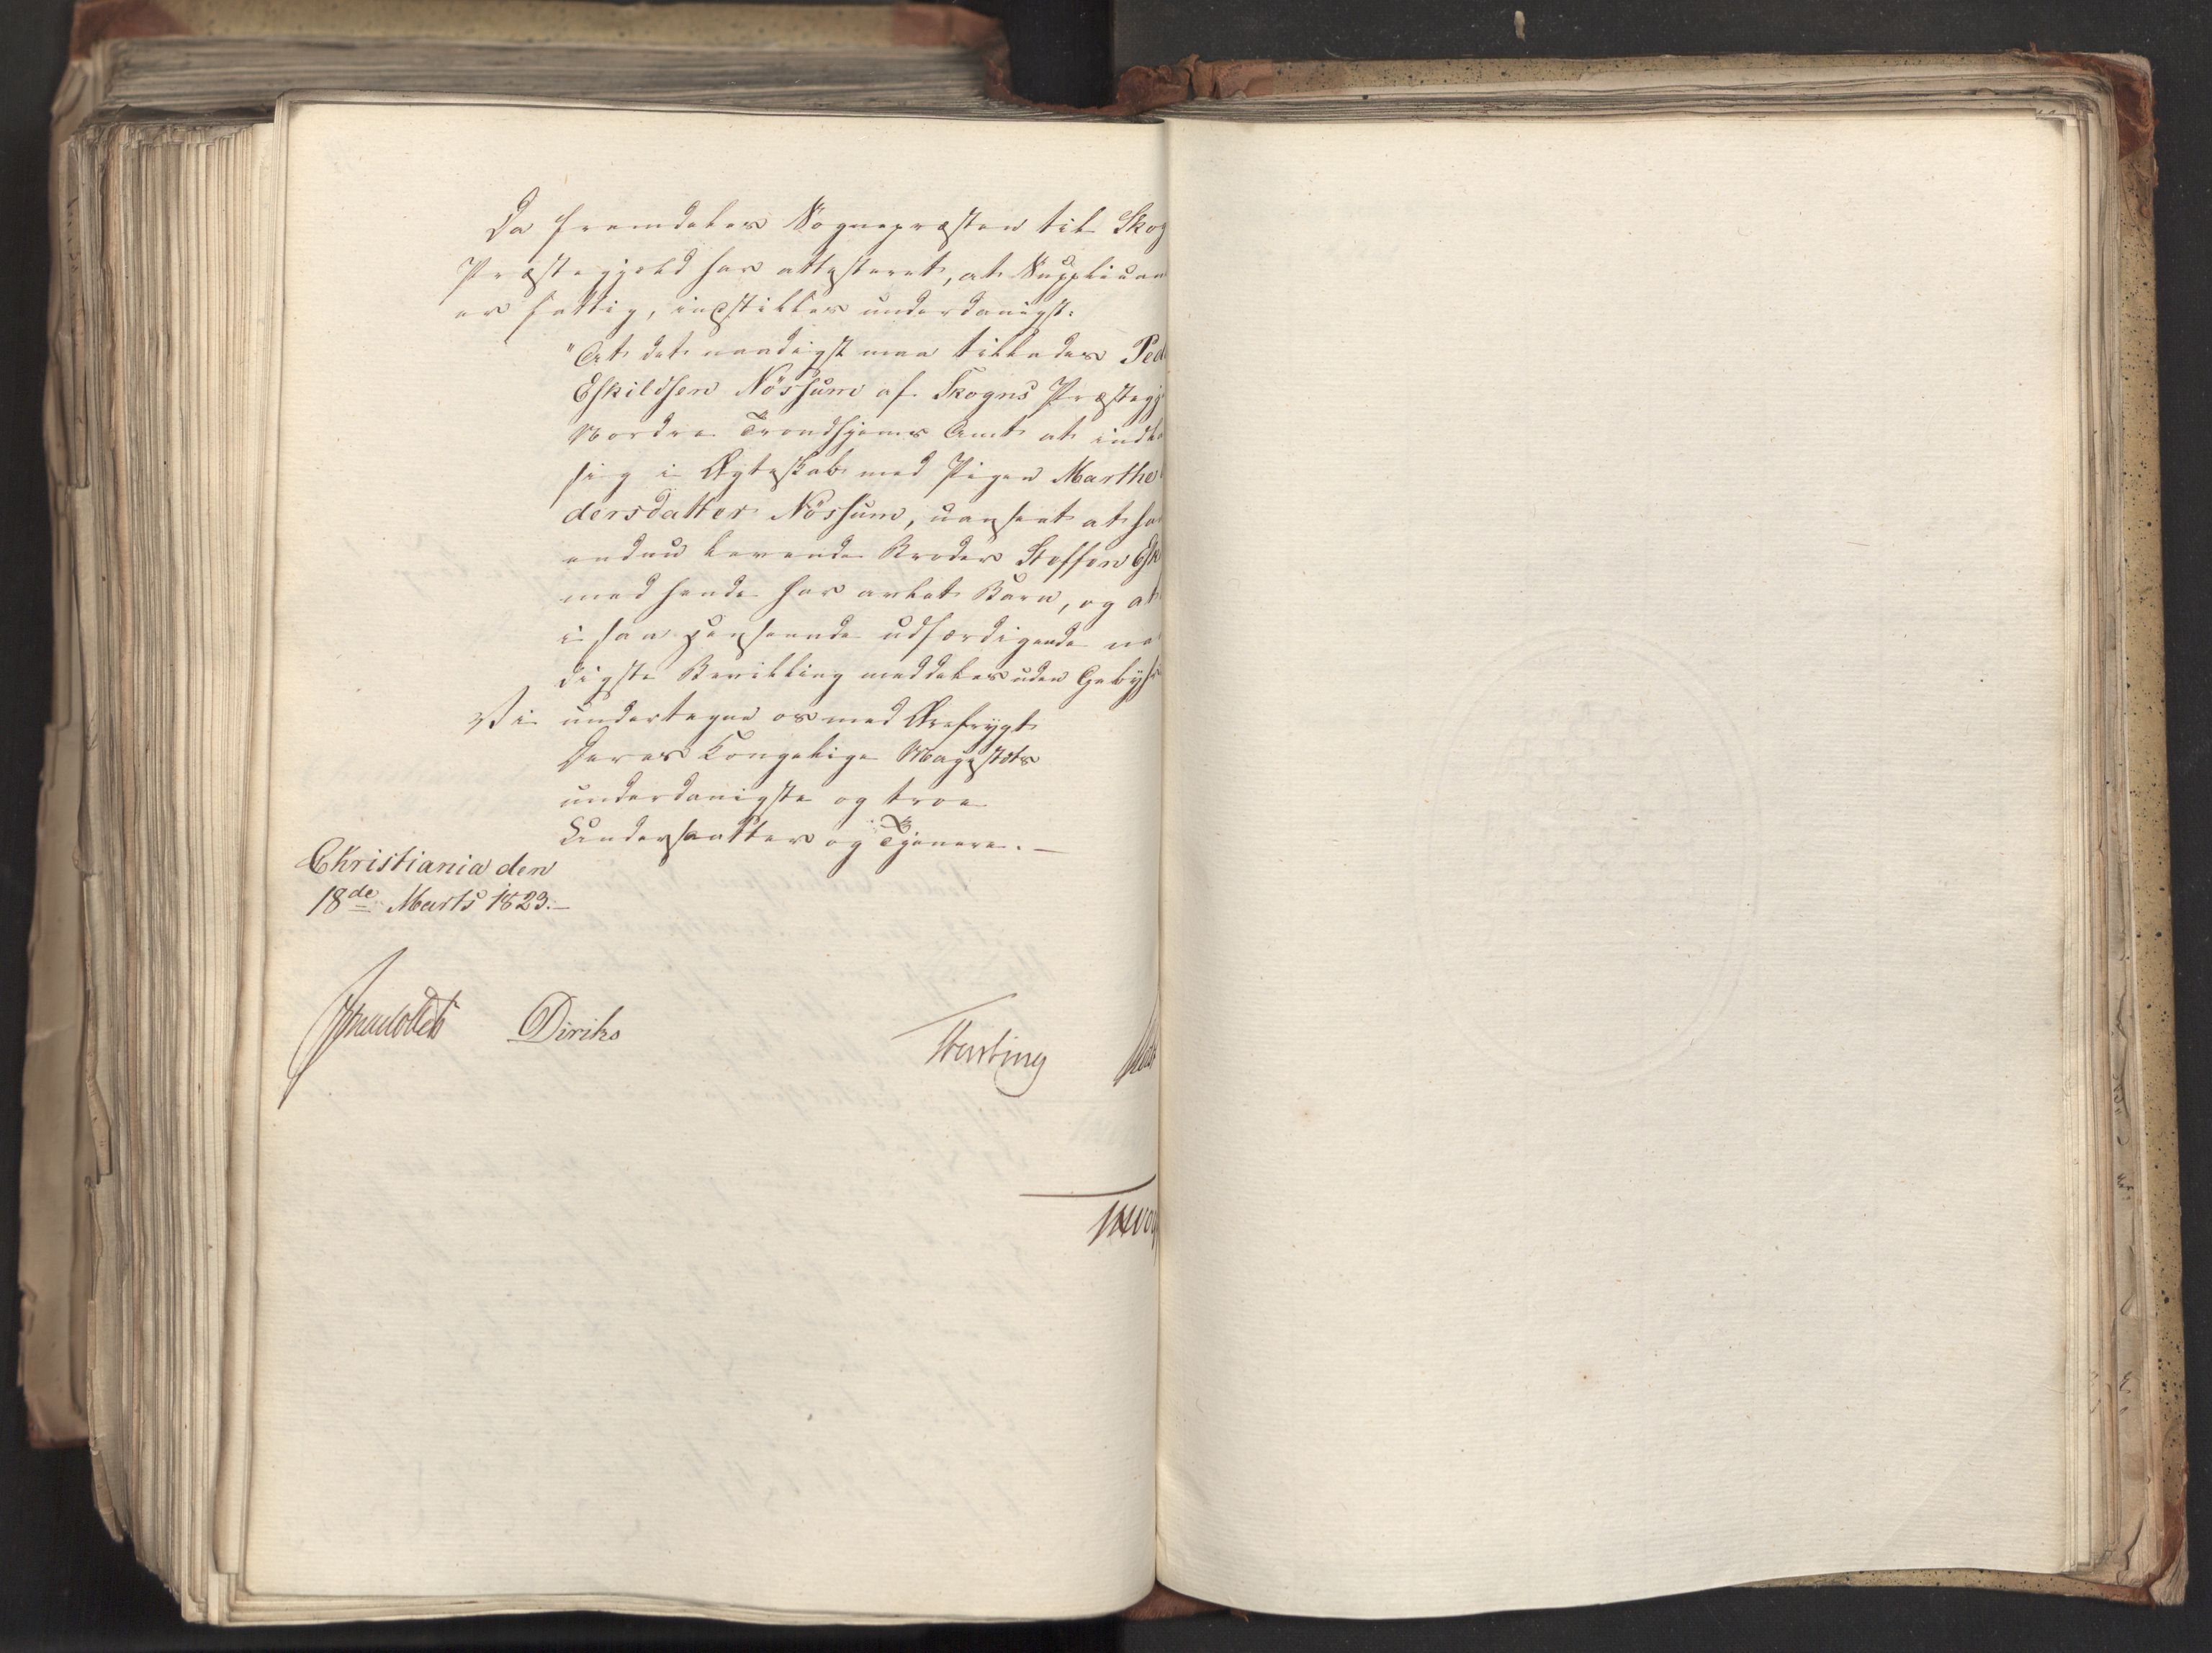 Da fremdeles Sognepræsten til Skog
Præstegjeld har attesteret, at Supplican
er fattig, indstilles underdanigst:
"At det naadigst maa tillades Ped
Eskildsen Nössum af Skogns Præstegj
Nordre Trondhjems Amt at indla
sig i Ægteskab med Pigen Marthe
dersdatter Nössum, uanseet at ha
endnu levende Broder Stoffen Esk
med hende har avlet Barn, og at
i saa henseende udfærdigende na
digste Bevilling meddeles uden Gebyhr
Vi undertegne os med Ærefrygt
Deres Kongelige Majestæts
underdanigste og troe
Undersaatter og Tjenere. —
Christiania den
18de Marts 1823. —
Diriks